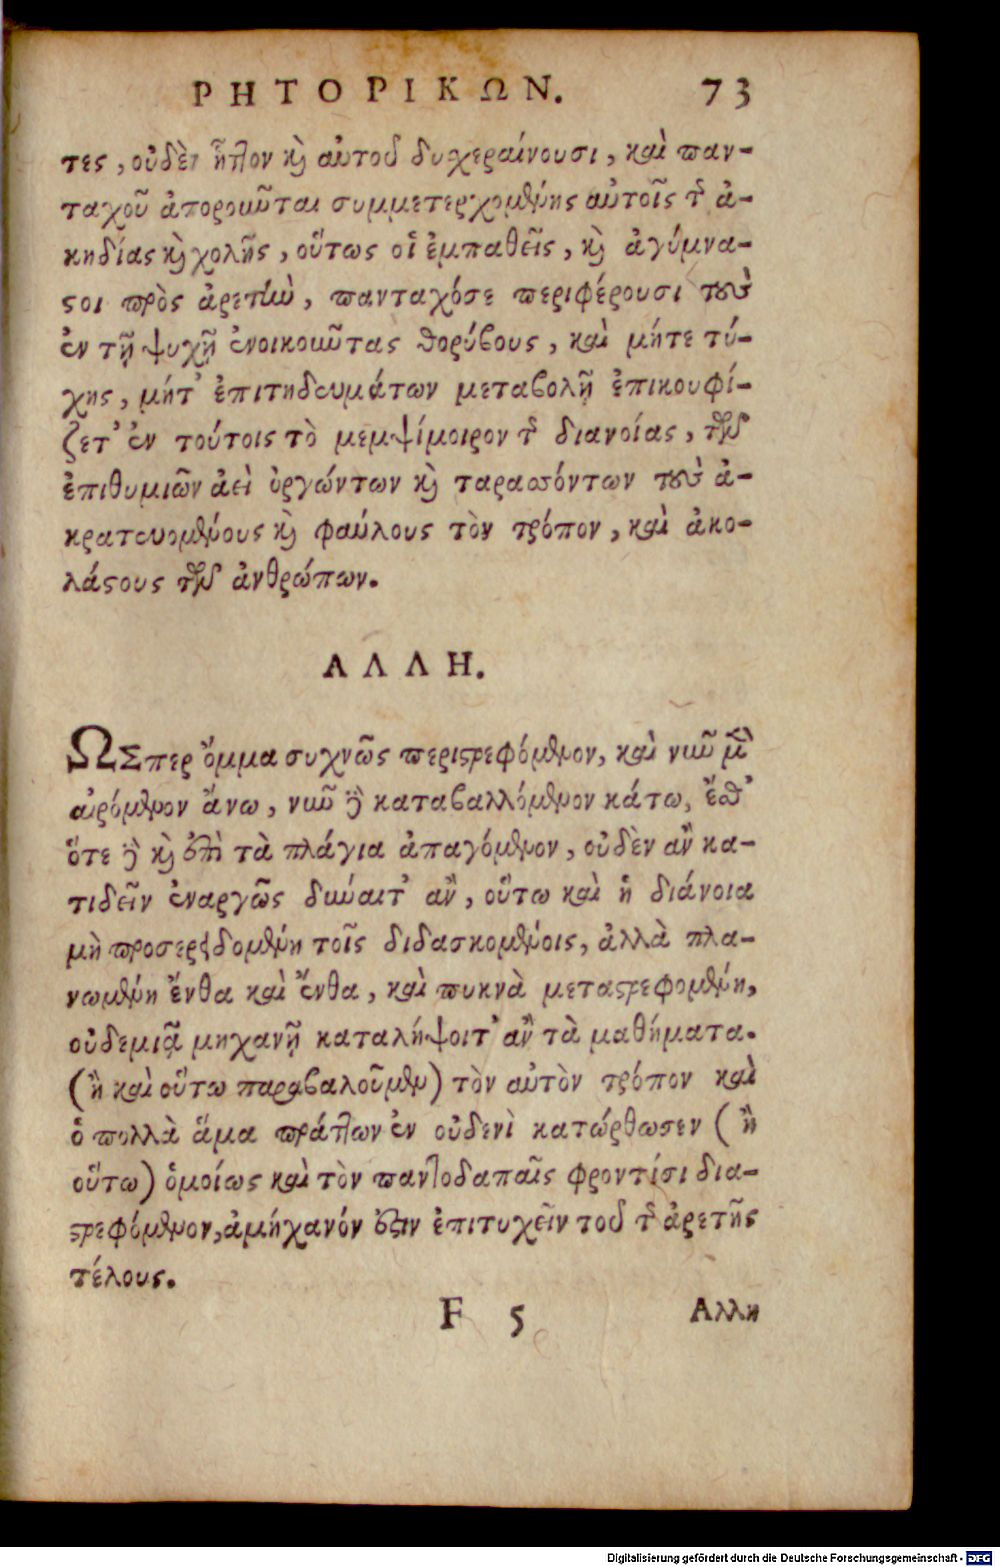 ΡΗΤΟΡΙΚΩΝ. 73
τες, οὐδὲν ἧττον καὶ αὐτοῦ δυχεραίνουσι, καὶ παν-
ταχοῦ ἀποροῦνται συμμετερχομένης αὐτοῖς τῆς ἀ-
κηδίας καὶ χολῆς, οὕτως οἱ ἐμπαθεῖς, καὶ ἀγύμνα-
στοι πρὸς ἀρετὴν, πανταχόσε περιφέρουσι τοὺς
ἐν τῇ ψυχῇ ἐνοικοῦντας θορύβους, καὶ μήτε τύ-
χης, μήτ' ἐπιτηδευμάτων μεταβολῇ ἐπικουφί-
ζετ' ἐν τούτοις τὸ μεμψίμοιρον τῆς διανοίας, τῶν
ἐπιθυμιῶν ἀεὶ ὀργώντων καὶ ταρασσόντων τοὺς ἀ-
κρατευομένους καὶ φαύλους τὸν τρόπον, καὶ ἀκο-
λάστους τῶν ἀνθρώπων.
ΑΛΛΗ.
ΩΣπερ ὄμμα συχνῶς περιστρεφόμενον, καὶ νῦν μὲν
αἰρόμενον ἄνω, νῦν δὲ καταβαλλόμενον κάτω, ἔσθ'
ὅτε δὲ καὶ ἐπὶ τὰ πλάγια ἀπαγόμενον, οὐδὲν ἂν κα-
τιδεῖν ἐναργῶς δύναιτ' ἂν, οὕτω καὶ ἡ διάνοια
μὴ προσερειδομένη τοῖς διδασκομένοις, ἀλλὰ πλα-
νωμένη ἔνθα καὶ ἔνθα, καὶ πυκνὰ μεταστρεφομένη,
οὐδεμιᾷ μηχανῇ καταλήψοιτ' ἂν τὰ μαθήματα.
(ἢ καὶ οὕτω παραβαλοῦμεν) τὸν αὐτὸν τρόπον καὶ
ὁ πολλὰ ἅμα πράττων ἐν οὐδενὶ κατώρθωσεν (ἢ
οὕτω) ὁμοίως καὶ τὸν παντοδαπαῖς φροντίσι δια-
στρεφόμενον, ἀμήχανόν ἐστιν ἐπιτυχεῖν τοῦ τῆς ἀρετῆς
τέλους.
F 5 Αλλη
Digitalisierung gefördert durch die Deutsche Forschungsgemeinschaft - DFG